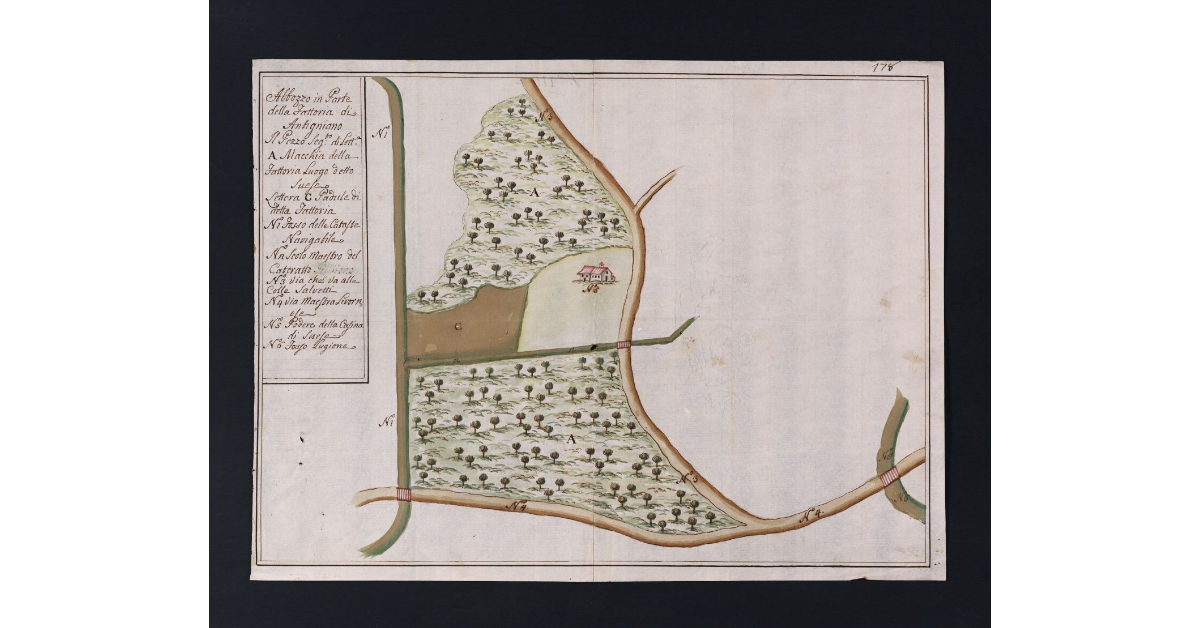 178
Abbozzo in Parte
della Fattoria di
Antigniano
Il Pezzo Seg.to di Lett.a
A Macchia della
Fattoria Luogo detto
Suese
Lettera C Padule di
detta Fattoria
N.1 Fosso delle Cataste
Navigabile
Scolo Maestro del
Cateratto
N.3 via che va alle
Colle Salvetti
N.4 via Maestra Livorn
ese
N.5 Podere della Casina
di Suese
N.6 Fosso Rugione
N.1
N.3
A
N.5
C
N.1
A
N.3
N.4
N.4